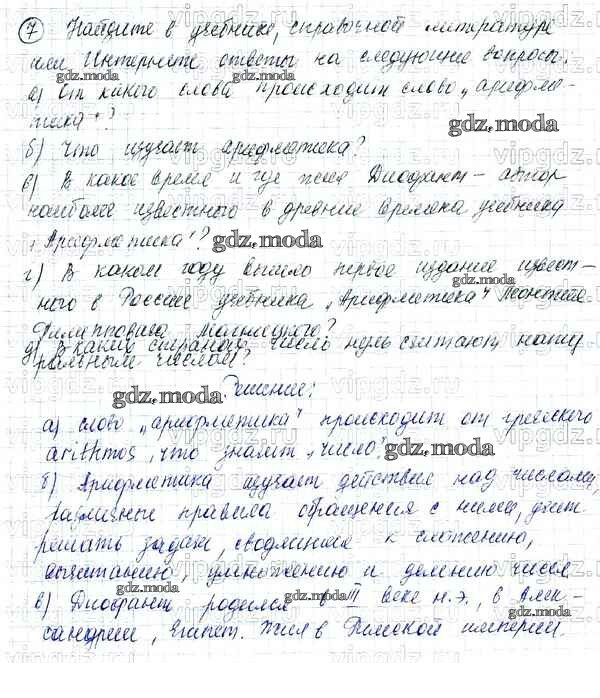 7 Найдите в учебнике, справочной литературе
или Интернете ответы на следующие вопросы:
а) От какого слова происходит слово „арифме-
тика"?
б) Что изучает арифметика?
в) В какое время и где жил Диофант - автор
наиболее известного в древние времена учебника
„Арифметика"?
г) В каком году вышло первое издание извест-
ного в России учебника „Арифметика" Леонтия
Филипповича Магницкого?
д) В каких странах число нуль считают нату
ральным числом?
Решение:
а) слово „арифметика" происходит от греческого
arithmos, что значит „число".
б) Арифметика изучает действия над числами,
различные правила обращения с ними, учит
решать задачи, сводящиеся к сложению,
вычитанию, умножению и делению чисел
в) Диофант родился в III веке н.э., в Алек-
сандрии, Египет. Жил в Римской империи.
gdz.moda
gdz.moda
gdz.moda
gdz.moda
gdz.moda
gdz.moda
gdz.moda
gdz.moda
gdz.moda
gdz.moda
gdz.moda
gdz.moda